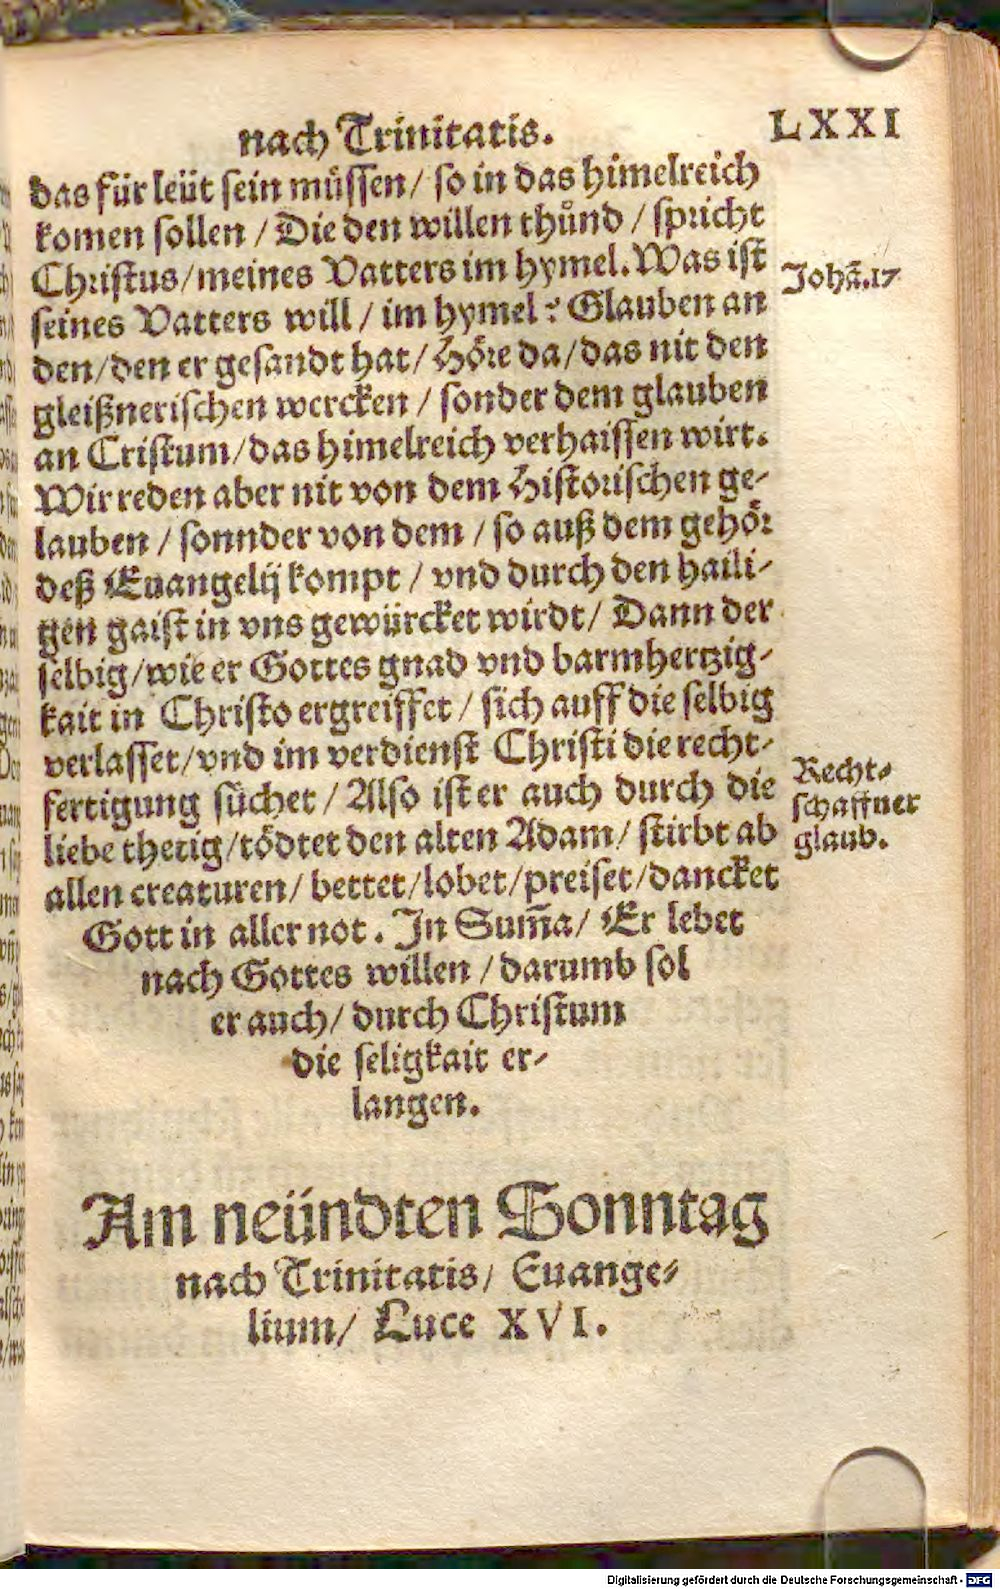 nach Trinitatis. LXXI
das für leüt sein müssen/ so in das himelreich
komen sollen / Die den willen thůnd / spricht
Christus/meines Vatters im hymel. Was ist
Johā.17
seines Vatters will / im hymel? Glauben an
den/den er gesandt hat/ Höre da/das nit den
gleißnerischen wercken / sonder dem glauben
an Cristum/das himelreich verhaissen wirt.
Wir reden aber nit von dem Historischen ge-
lauben / sonnder von dem / so auß dem gehör
deß Euangelij kompt / vnd durch den haili-
gen gaist in vns gewürcket wirdt/ Dann der
selbig/wie er Gottes gnad vnd barmhertzig-
kait in Christo ergreiffet / sich auff die selbig
verlasset/vnd im verdienst Christi die recht-
fertigung süchet / Also ist er auch durch die
liebe thetig/tödtet den alten Adam/ stirbt ab
allen creaturen/ bettet/lobet/preiset/dancket
Recht-
schaffner
glaub.
Gott in aller not. In Sum̄a/ Er lebet
nach Gottes willen /darumb sol
er auch/ durch Christum
die seligkait er-
langen.
Am neündten Sonntag
nach Trinitatis/ Euange-
lium/ Luce XVI.
Digitalisierung gefördert durch die Deutsche Forschungsgemeinschaft - DFG